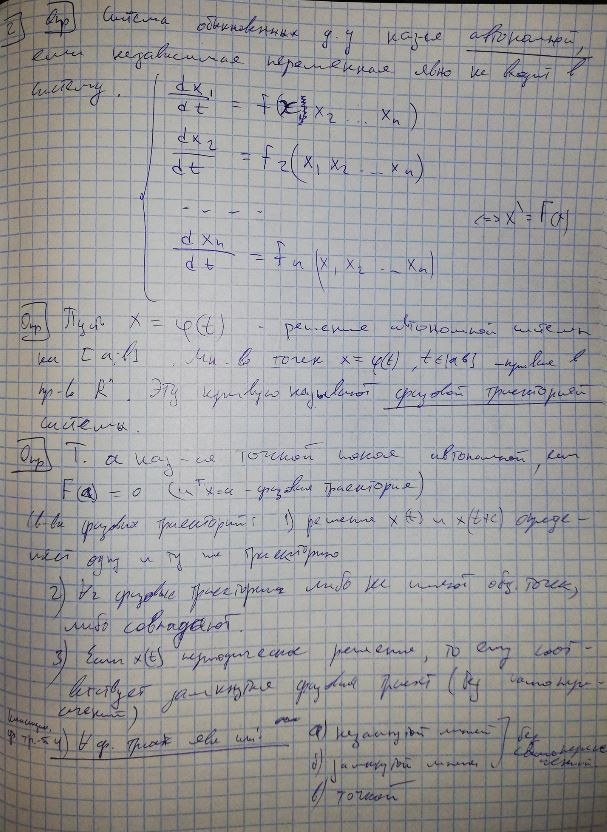 2 Опр Система обыкновенных д.у наз-ся автономной,
если независимая переменная явно не входит в
систему.
dx1/dt = f(x1 x2 ... xn)
dx2/dt = f2(x1 x2 ... xn)
- - - -
<=> x' = F(x)
dxn/dt = fn(x1 x2 ... xn)
Опр Пусть x = φ(t) - решение автономной системы
на [a;b]. Мн-во точек x = φ(t), t∈[a b] - кривая в
пр-ве R^n. Эту кривую называют фазовой траекторией
системы.
Опр Т. a наз-ся точкой покоя автономной, если
F(a) = 0 (x=a - фазовая траектория)
Св-ва фазовых траекторий: 1) решение x(t) и x(t+c) опреде-
ляет одну и ту же траекторию
2) ∀2 фазовые траектории либо не имеют общ точек,
либо совпадают.
3) Если x(t) периодическое решение, то ему соот-
ветствует замкнутая фазовая траект (без самопере-
сечений)
4) ∀ ф. траек явл
а) незамкнутой линией
б) замкнутой линией
без самопересечений
в) точкой